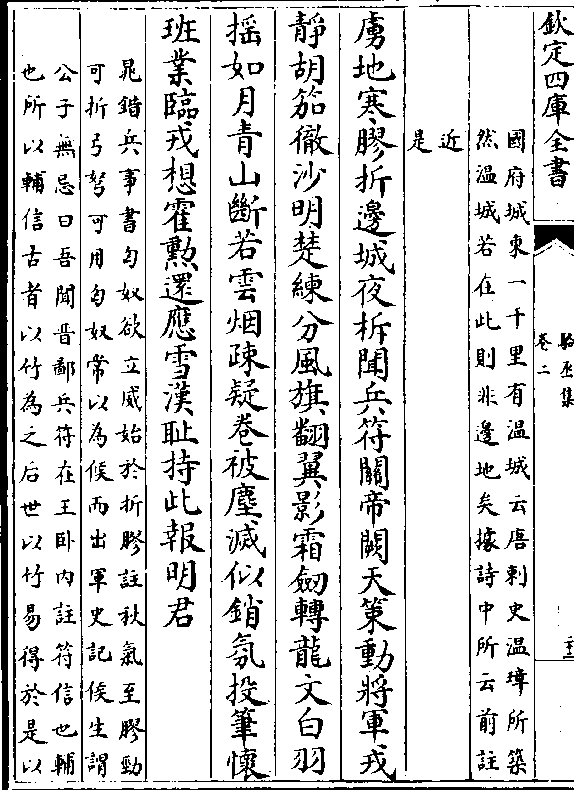 欽定四庫全書
駱丞集
卷二
國府城東一千里有温城云唐刺史温璋所築
然温城若在此則非邊地矣據詩中所云前註
近
是
虜地寒膠折邊城夜柝聞兵符關帝闕天策動將軍戎
靜胡笳徹沙明楚練分風旗翻翼影霜劒轉龍文白羽
摇如月青山斷若雲烟疎疑卷被塵滅似銷氛投筆懷
班業臨戎想霍勲還應雪漢耻持此報明君
晁錯兵事書匈奴欲立威始於折膠註秋氣至膠勁
可折弓弩可用匈奴常以為候而出軍史記侯生謂
公子無忌曰吾聞晋鄙兵符在王卧内註符信也輔
也所以輔信古者以竹為之后世以竹易得於是以